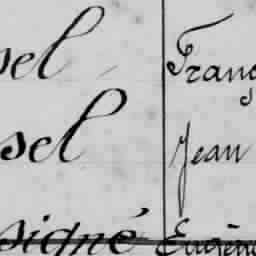 sel Franç
sel Jean
signé Eugèn